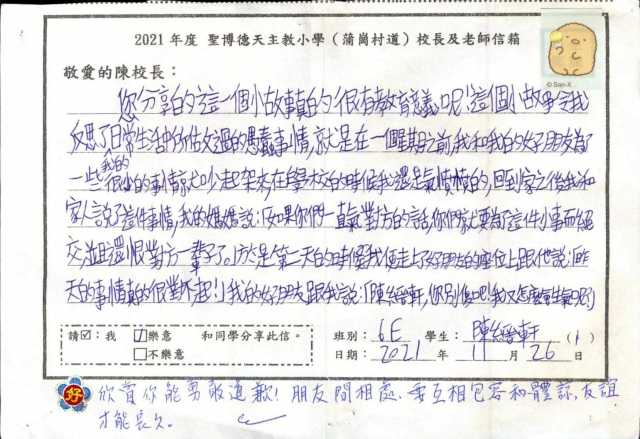 2021 年度 聖博德天主教小學（蒲崗村道）校長及老師信箱
敬愛的陳校長：
© San-X
您分享的這一個小故事真的很有教育意義呢！這個小故事令我
反思了日常生活中所做過的愚蠢事情，就是在一個星期之前，我和我的好朋友為了
一些很小的事情就吵起架來，在學校的時候我還是氣憤憤的，回到家之後我和
我的
家人說了這件事情，我的媽媽說：「如果你們一直氣對方的話，你們就要為這件小事而絕
交，並且還恨對方一輩子了。」於是第二天的時候我便走上了好朋友的座位上跟他說：「昨
天的事情真的很對不起！」我的好朋友跟我說：「陳縉軒，你別傻吧！我又怎麼會生氣呢？」
請☑：我 ☑樂意 和同學分享此信。
□不樂意
班別： 6E 學生： 陳縉軒 ( 1 )
日期： 2021 年 11 月 26 日
好
欣賞你能勇敢道歉！朋友間相處，要互相包容和體諒，友誼
才能長久。